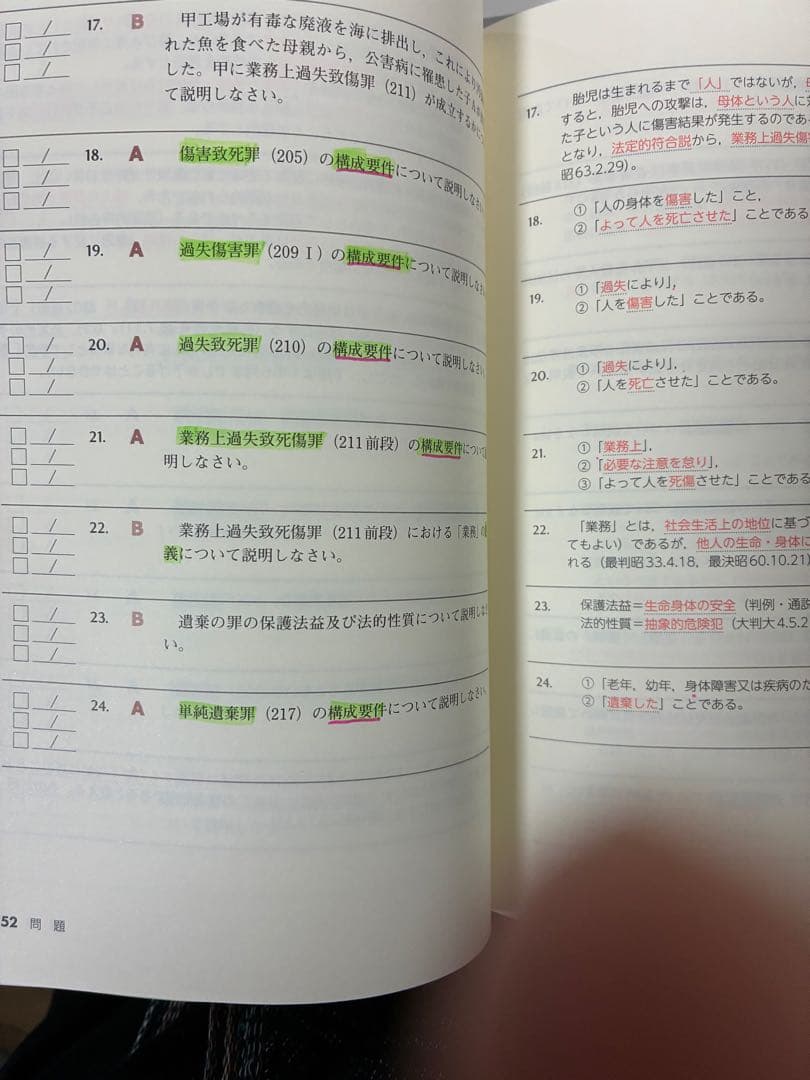 17. B 甲工場が有毒な廃液を海に排出し,これにより
れた魚を食べた母親から,公害病に罹患した子
した。甲に業務上過失致傷罪(211)が成立するか
て説明しなさい。
18. A 傷害致死罪(205)の構成要件について説明しなさい
19. A 過失傷害罪(209Ⅰ)の構成要件について説明しなさ
20. A 過失致死罪(210)の構成要件について説明しなさい。
21. A 業務上過失致死傷罪(211前段)の構成要件について
明しなさい。
22. B 業務上過失致死傷罪(211前段)における「業務」の
義について説明しなさい。
23. B 遺棄の罪の保護法益及び法的性質について説明しなさ
い。
24. A 単純遺棄罪(217)の構成要件について説明しなさい。
52 問題
17. 胎児は生まれるまで「人」ではないが,
すると,胎児への攻撃は,母体という人に
た子という人に傷害結果が発生するのであ
となり,法定的符合説から,業務上過失傷
昭63.2.29)。
18. ①「人の身体を傷害した」こと,
②「よって人を死亡させた」ことであ
19. ①「過失により」,
②「人を傷害した」ことである。
20. ①「過失により」,
②「人を死亡させた」ことである。
21. ①「業務上」,
②「必要な注意を怠り」,
③「よって人を死傷させた」ことであ
22. 「業務」とは,社会生活上の地位に基づ
てもよい)であるが,他人の生命・身体に
れる(最判昭33.4.18,最決昭60.10.21)
23. 保護法益=生命身体の安全(判例・通説
法的性質=抽象的危険犯(大判大4.5.2
24. ①「老年,幼年,身体障害又は疾病のた
②「遺棄した」ことである。